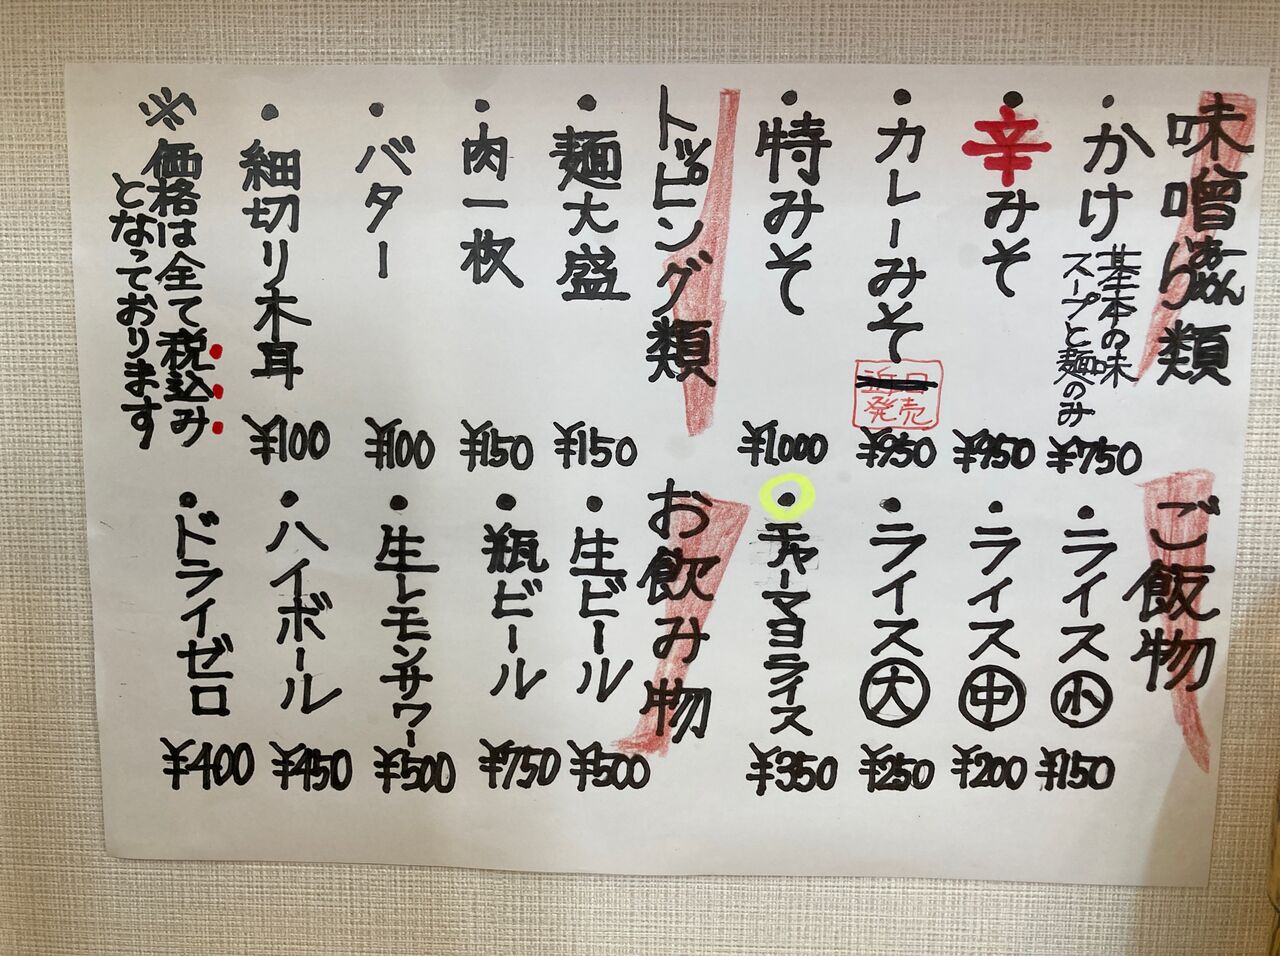 味噌らぁめん類
・かけ
基本の味
スープと麺のみ
¥750
・辛みそ
¥950
・カレーみそ
近日
発売
¥950
・特みそ
¥1000
トッピング類
・麺大盛
¥150
・肉一枚
¥150
・バター
¥100
・細切り木耳
¥100
※価格は全て税込み
となっております
ご飯物
・ライス㊥小
¥150
・ライス㊥
¥200
・ライス大
¥250
・チャーマヨライス
¥350
お飲み物
・生ビール
¥500
・瓶ビール
¥750
・生レモンサワー
¥500
・ハイボール
¥450
・ドライゼロ
¥400